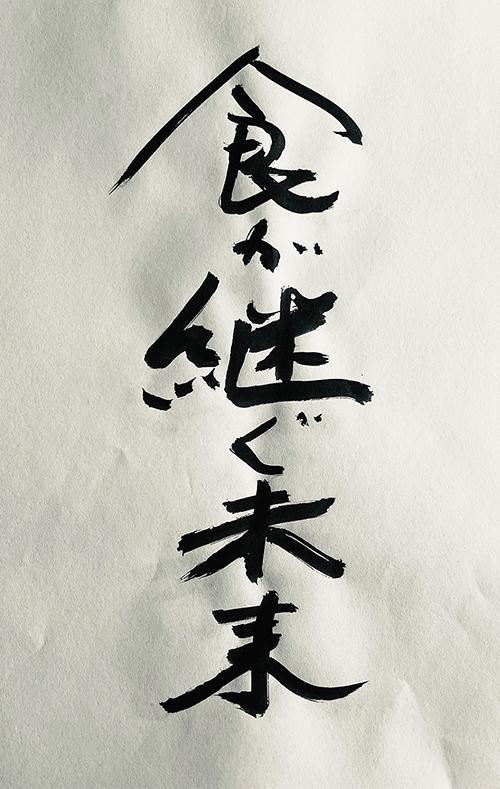 食が継ぐ未来